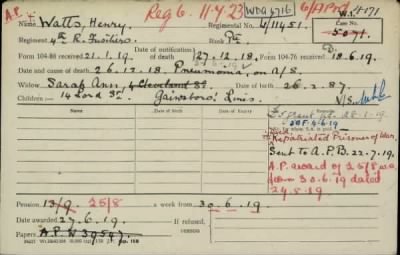 A.P. Reg 6. 11.4.23 WDA 4716 6/APW W.R.
Name Watts, Henry. Regimental No. L/11451. 5071.
Regiment 4th R. Fusiliers Rank Pte.
Date of notification
Form 104-88 received 21.1.19. of death 27.12.18. Form 104-76 received 18.6.19.
Date and cause of death 26.12.18. Pneumonia, on A/S.
Widow Sarah Ann, 4 Cleveland St. Date of birth 26.2.87.
Children— 14 Lord St. Gainsboro' Lincs. N/S
Name Date of Birth Date of Expiry
28.1.19.
4.6.19
No. for whom S.A. is paid
Repatriated Prisoner of War.
Sent to A.P.B. 22.7.19.
A.P. award of 25/8 w.a.
from 30.6.19 dated
29.8.19
Pension 13/9. 25/8 a week from 30.6.19.
Date awarded 27.6.19. If refused, reason
Papers A.P.W 39597.